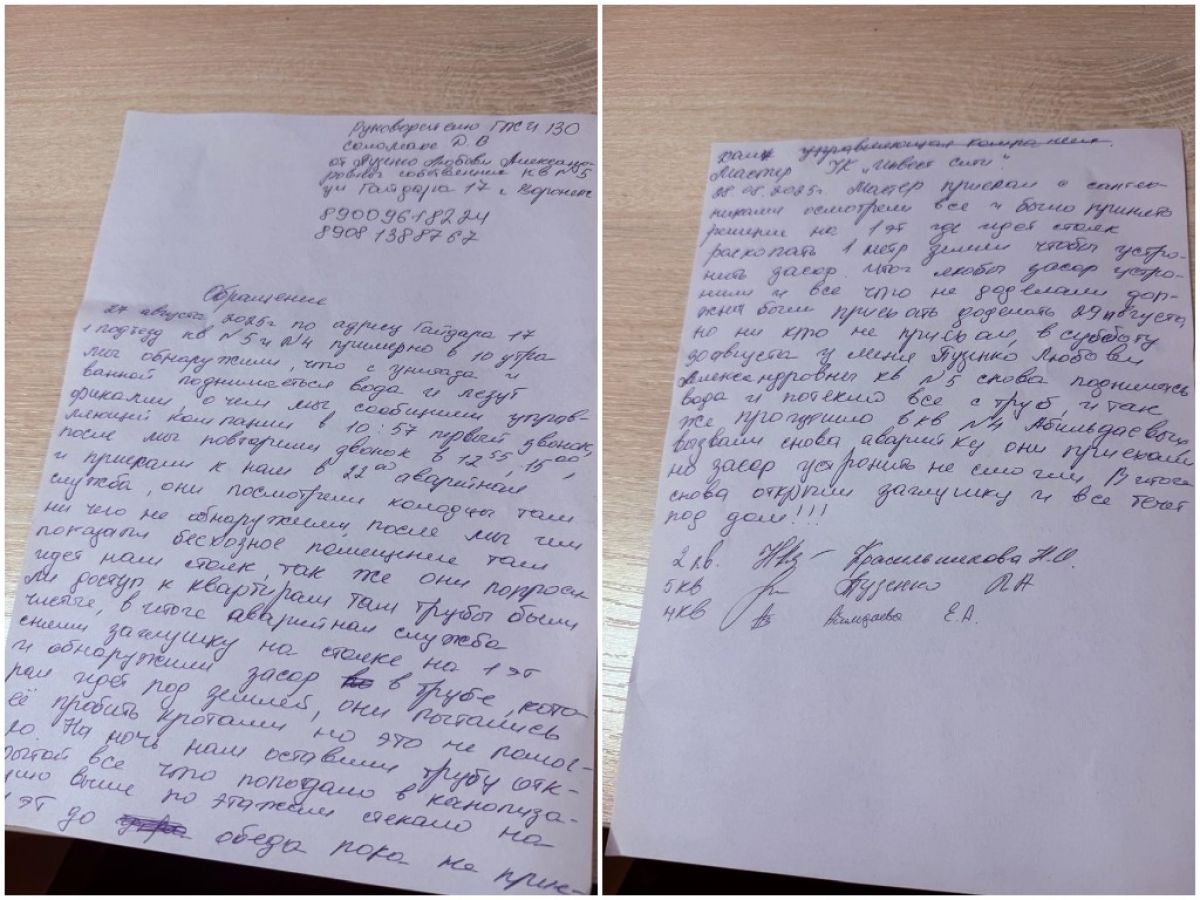 Руководителю ГЖИ 130
Соломахе Д. В
от Пузенко Любови Александ-
ровны собственник кв №5
ул Гайдара 17 г. Воронеж
89009618224
89081388767
Обращение
27 августа 2025г по адресу Гайдара 17
1 подъезд кв №5 и №4 примерно в 10 утра
мы обнаружили, что с унитаза и
ванной поднимается вода и лезут
фикалии о чем мы сообщили управ-
ляющей компании в 10:57 первый звонок,
после мы повторили звонок в 12 55, 15 00,
и приехали к нам в 22 00 аварийная
служба, они посмотрели колодцы там
ни чего не обнаружили, после мы им
показали бесхозное помещение там
идет наш стояк, так же они попроси
ли доступ к квартирам там трубы были
чистые, в итоге аварийная служба
сняли заглушку на стояке на 1 эт
и обнаружили засор в трубе, кото-
рая идет под землей, они пытались
её пробить кротами но это не помог-
ло. На ночь нам оставили трубу отк-
рытой все что попадало в канолиза-
цию выше по этажам стекало на
1 эт до обеда пока не прие-
хали управляющая компания.
Мастер УК "Инвест Сити"
28.08.2025г. Мастер приехал с санте-
никами осмотрели все и было принято
решение на 1 эт где идет стояк
раскопать 1 метр земли чтобы устро-
нить засор. Итог любы засор устро-
нили и все что не доделали дол-
жны были приехать доделать 29 августа,
но ни кто не приехал, в субботу
30 августа у меня Пузенко Любови
Александровны кв №5 снова поднялась
вода и потекло все с труб, и так
же прогудило в кв №4 Абильдаевых
вызвали снова аварийку они приехали
но засор устронить не смогли. В итоге
снова открыли заглушку и все течет
под дом!!!
2 кв. Красильникова Н.Ю.
5 кв Пузенко Л А
4 кв Абильдаева Е.А.